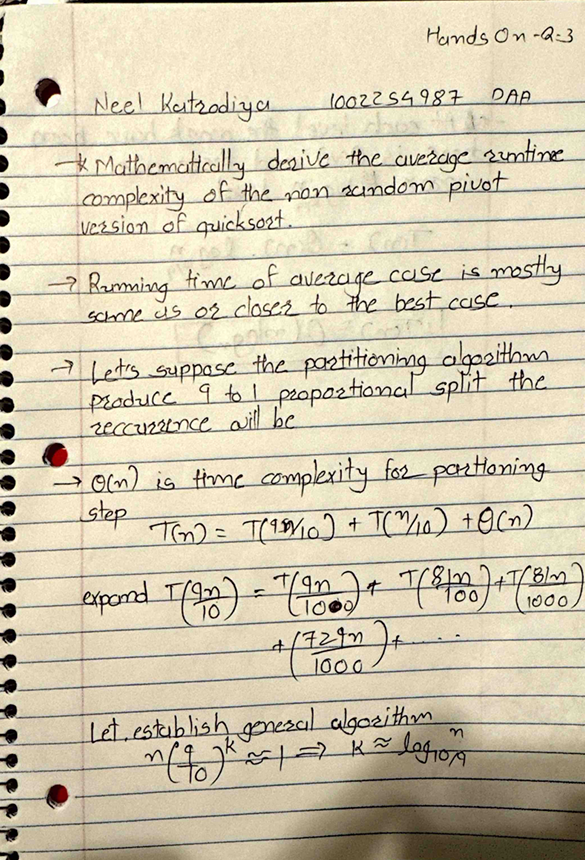 Hands On -2-3
Neel Katrodiya 1002254987 DAA
-* Mathematically derive the average runtime
complexity of the non random pivot
version of quicksort.
→ Running time of average case is mostly
same as or closer to the best case.
→ Let's suppose the partitioning algorithm
produce 9 to 1 proportional split the
reccurrence will be
→ Θ(n) is time complexity for partioning
step
T(n) = T(9n/10) + T(n/10) + Θ(n)
expand T(9n/10) = T(9n/100) + T(81n/100) + T(81n/1000)
+ (729n/1000) + .....
Let, establish general algorithm
n(9/10)^k ≈ 1 ⇒ k ≈ log_{10/9} n